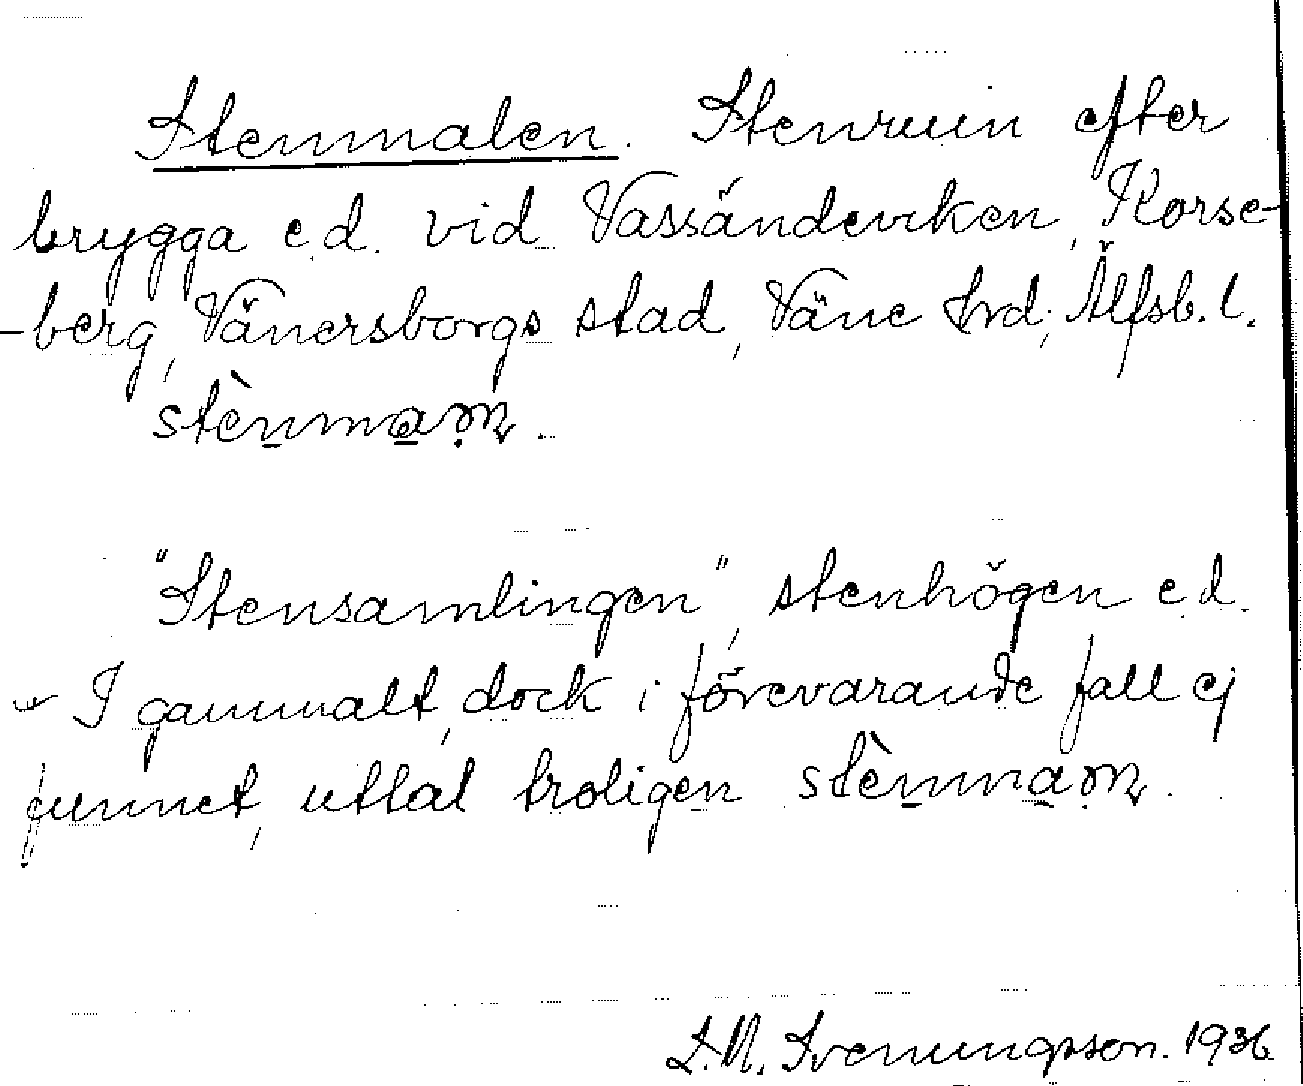 Stenmalen. Stenruin efter
brygga e.d. vid Vassändeviken, Korse-
-berg, Vänersborgs stad, Väne hrd, Älfsb. l.
"Stensamlingen", stenhögen e.d.
- I gammalt, dock i förevarande fall ej
funnet, uttal troligen
S.M. Svenungsson. 1936